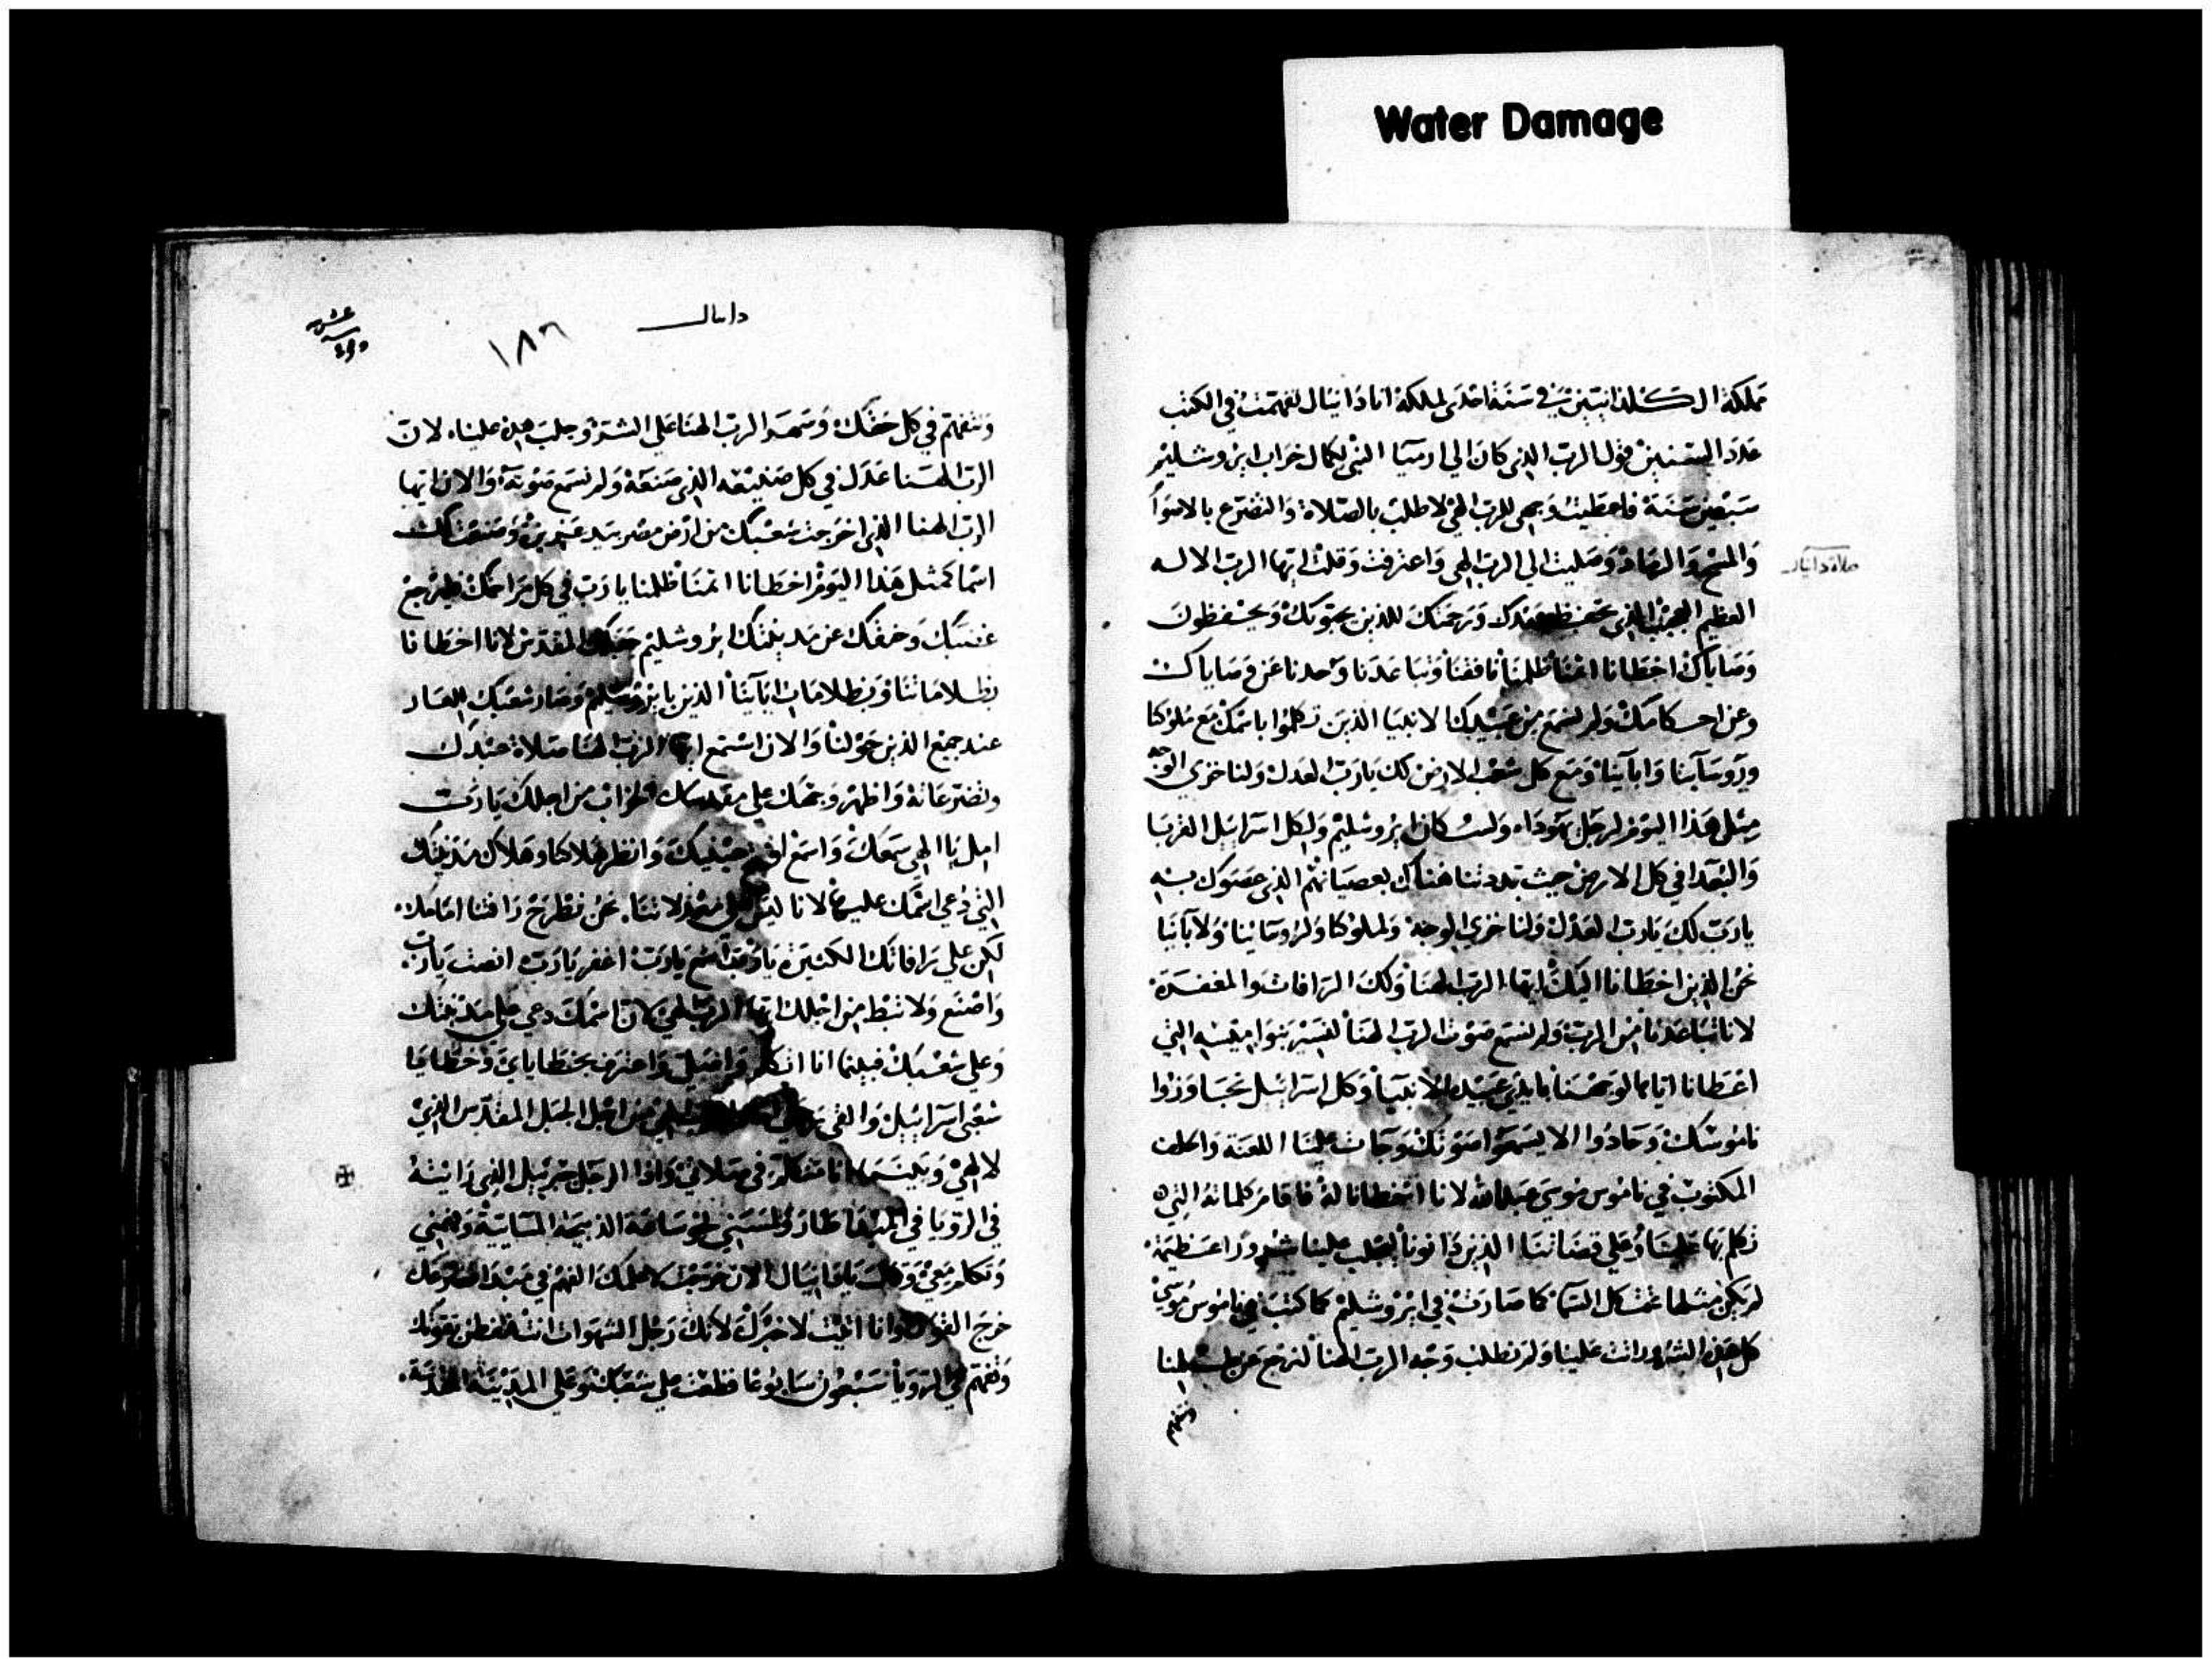 Water Damage
مملكة الكلدانيين في سنة احدى لملكه انا دانيال تفهمت في الكتب
عدد السنين قول الرب الذي كان الي ارميا النبي لكمال خراب ايروشليم
سبعين سنة فاعطيت وجهي للرب الهي لاطلب بالصلاة والتضرع بالاصوام
والمسح والرماد وصليت الي الرب الهي واعترفت وقلت ايها الرب الاله
صلاة دانيال
العظيم العجيب الذي تحفظ عهدك ورحمتك للذين يحبونك ويحفظون
وصاياك اخطانا اثمنا ظلمنا نافقنا وتباعدنا وحدنا عن وصاياك
وعن احكامك ولم نسمع من عبيدك الانبيا الذين تكلموا باسمك مع ملوكنا
وروسآينا وابآينا ومع كل شعب الارض لك يارب العدل ولنا خزي الوجه
مثل هذا اليوم لرجل يهودا ولسكان ايروشليم ولكل اسرائيل القربا
والبعدا في كل الارض حيث بددتنا هناك بعصيانهم الذي عصوك به
يارب لك يارب العدل ولنا خزي الوجه ولملوكنا ولروسائنا ولابآينا
نحن الذين اخطانا اليك ايها الرب الهنا ولك الرافات والمغفرة
لانا تباعدنا من الرب ولم نسمع صوت الرب الهنا لنسير بنواميسه التي
اعطانا اياها لوجهنا بايدي عبيده الانبيا وكل اسرائيل تجاوزوا
ناموسك وحادوا الا يسمعوا صوتك وجات علينا اللعنة والحلف
المكتوب في ناموس موسى عبدالله لانا اخطانا له فاقام كلماته التي
تكلم بها علينا وعلى قضاتنا الذين دانونا ليجلب علينا شرورا عظيمة
لم يكن مثلها تحت كل السما كما صارت في ايروشليم كما كتب في ناموس موسي
كل هذه الشرور اتت علينا ولم نطلب وجه الرب الهنا لنرجع عن ظلمنا
ونتفهم
دانيال
١٨٦
ونتفهم في كل حقك وسهد الرب الهنا علي الشر وجلب هذه علينا لان
الرب الهنا عدل في كل صنيعه الذي صنعه ولم نسمع صوته والان ايها
الرب الهنا الذي اخرجت شعبك من ارض مصر بيد عزيزه وصنعت لك
اسما كمثل هذا اليوم اخطانا اثمنا ظلمنا يارب في كل مراحمك فليرجع
غضبك وحنقك عن مدينتك ايروشليم جبلك المقدس لانا اخطانا
بظلاماتنا وبظلامات ابآينا الذين بايروشليم وصار شعبك العار
عند جميع الذين حولنا والان استمع ايها الرب الهنا صلاة عبدك
وتضرعاته واظهر وجهك علي مقدسك الخراب من اجلك يارب
امل يا الهي سمعك واسمع افتح عينيك وانظر هلاكنا وهلاك مدينتك
التي دعي اسمك عليها لانا ليس علي عدلاتنا نحن نطرح رافتنا امامك
لكن علي رافاتك الكثيرة يارب اسمع يارب اغفر يارب انصت يارب
واصنع ولا تبط من اجلك ايها الرب الهي لان اسمك دعي علي مدينتك
وعلي شعبك فبينما انا اتكلم واصلي واعترف بخطاياي وخطايا
شعبي اسرائيل والقي من اجل الجبل المقدس الذي
لالهي وبينما انا متكلم في صلاتي واذا الرجل جبرئيل الذي رايته
في الرويا في البدء طار ولمسني نحو ساعة الذبيحة المسايية وفهمني
وتكلم معي وقال يادانيال الان خرجت لاعلمك الفهم في مبدا تضرعك
خرج القول وانا اتيت لاخبرك لانك رجل الشهوات انت فتفطن بقولك
وتفهم في الرويا سبعون سابوعا قطعت علي شعبك وعلي المدينة المقدسة